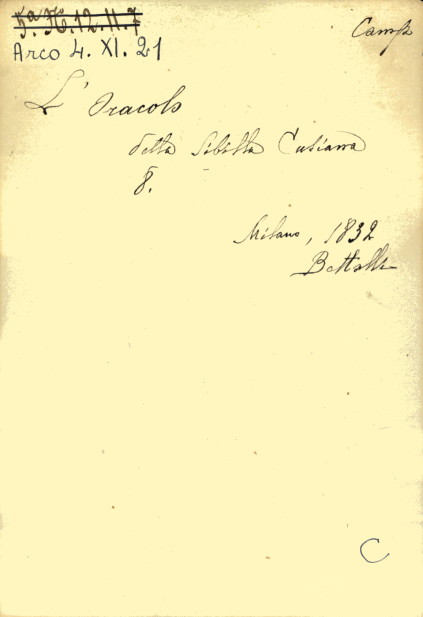 5ª H. 12. 11. 7
Arco 4. XI. 21
Camp
L' Oracolo
della Sibilla Cusiana
8.
Milano, 1832
Bettalli
C